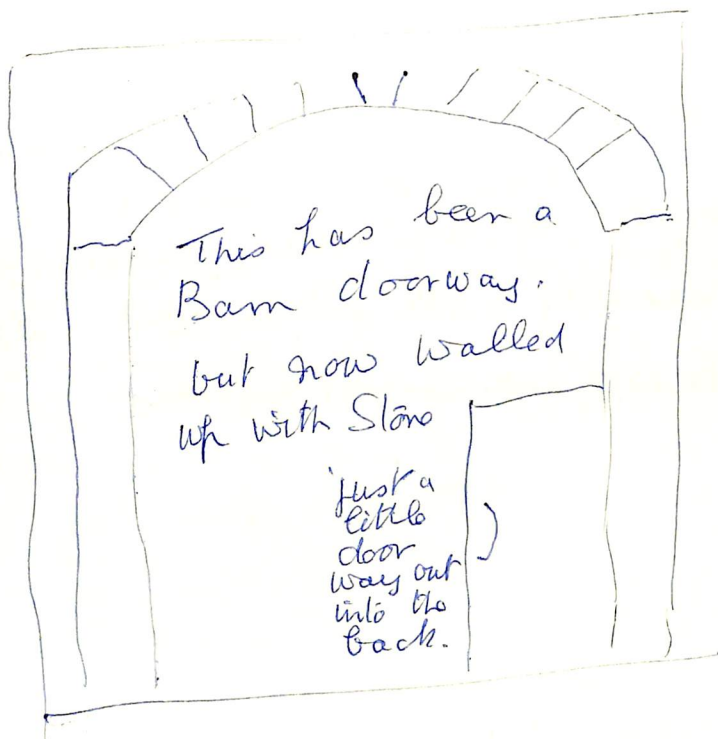 This has been a
Barn doorway.
but now walled
up with Stone
just a
little
door
way out
into the
back.